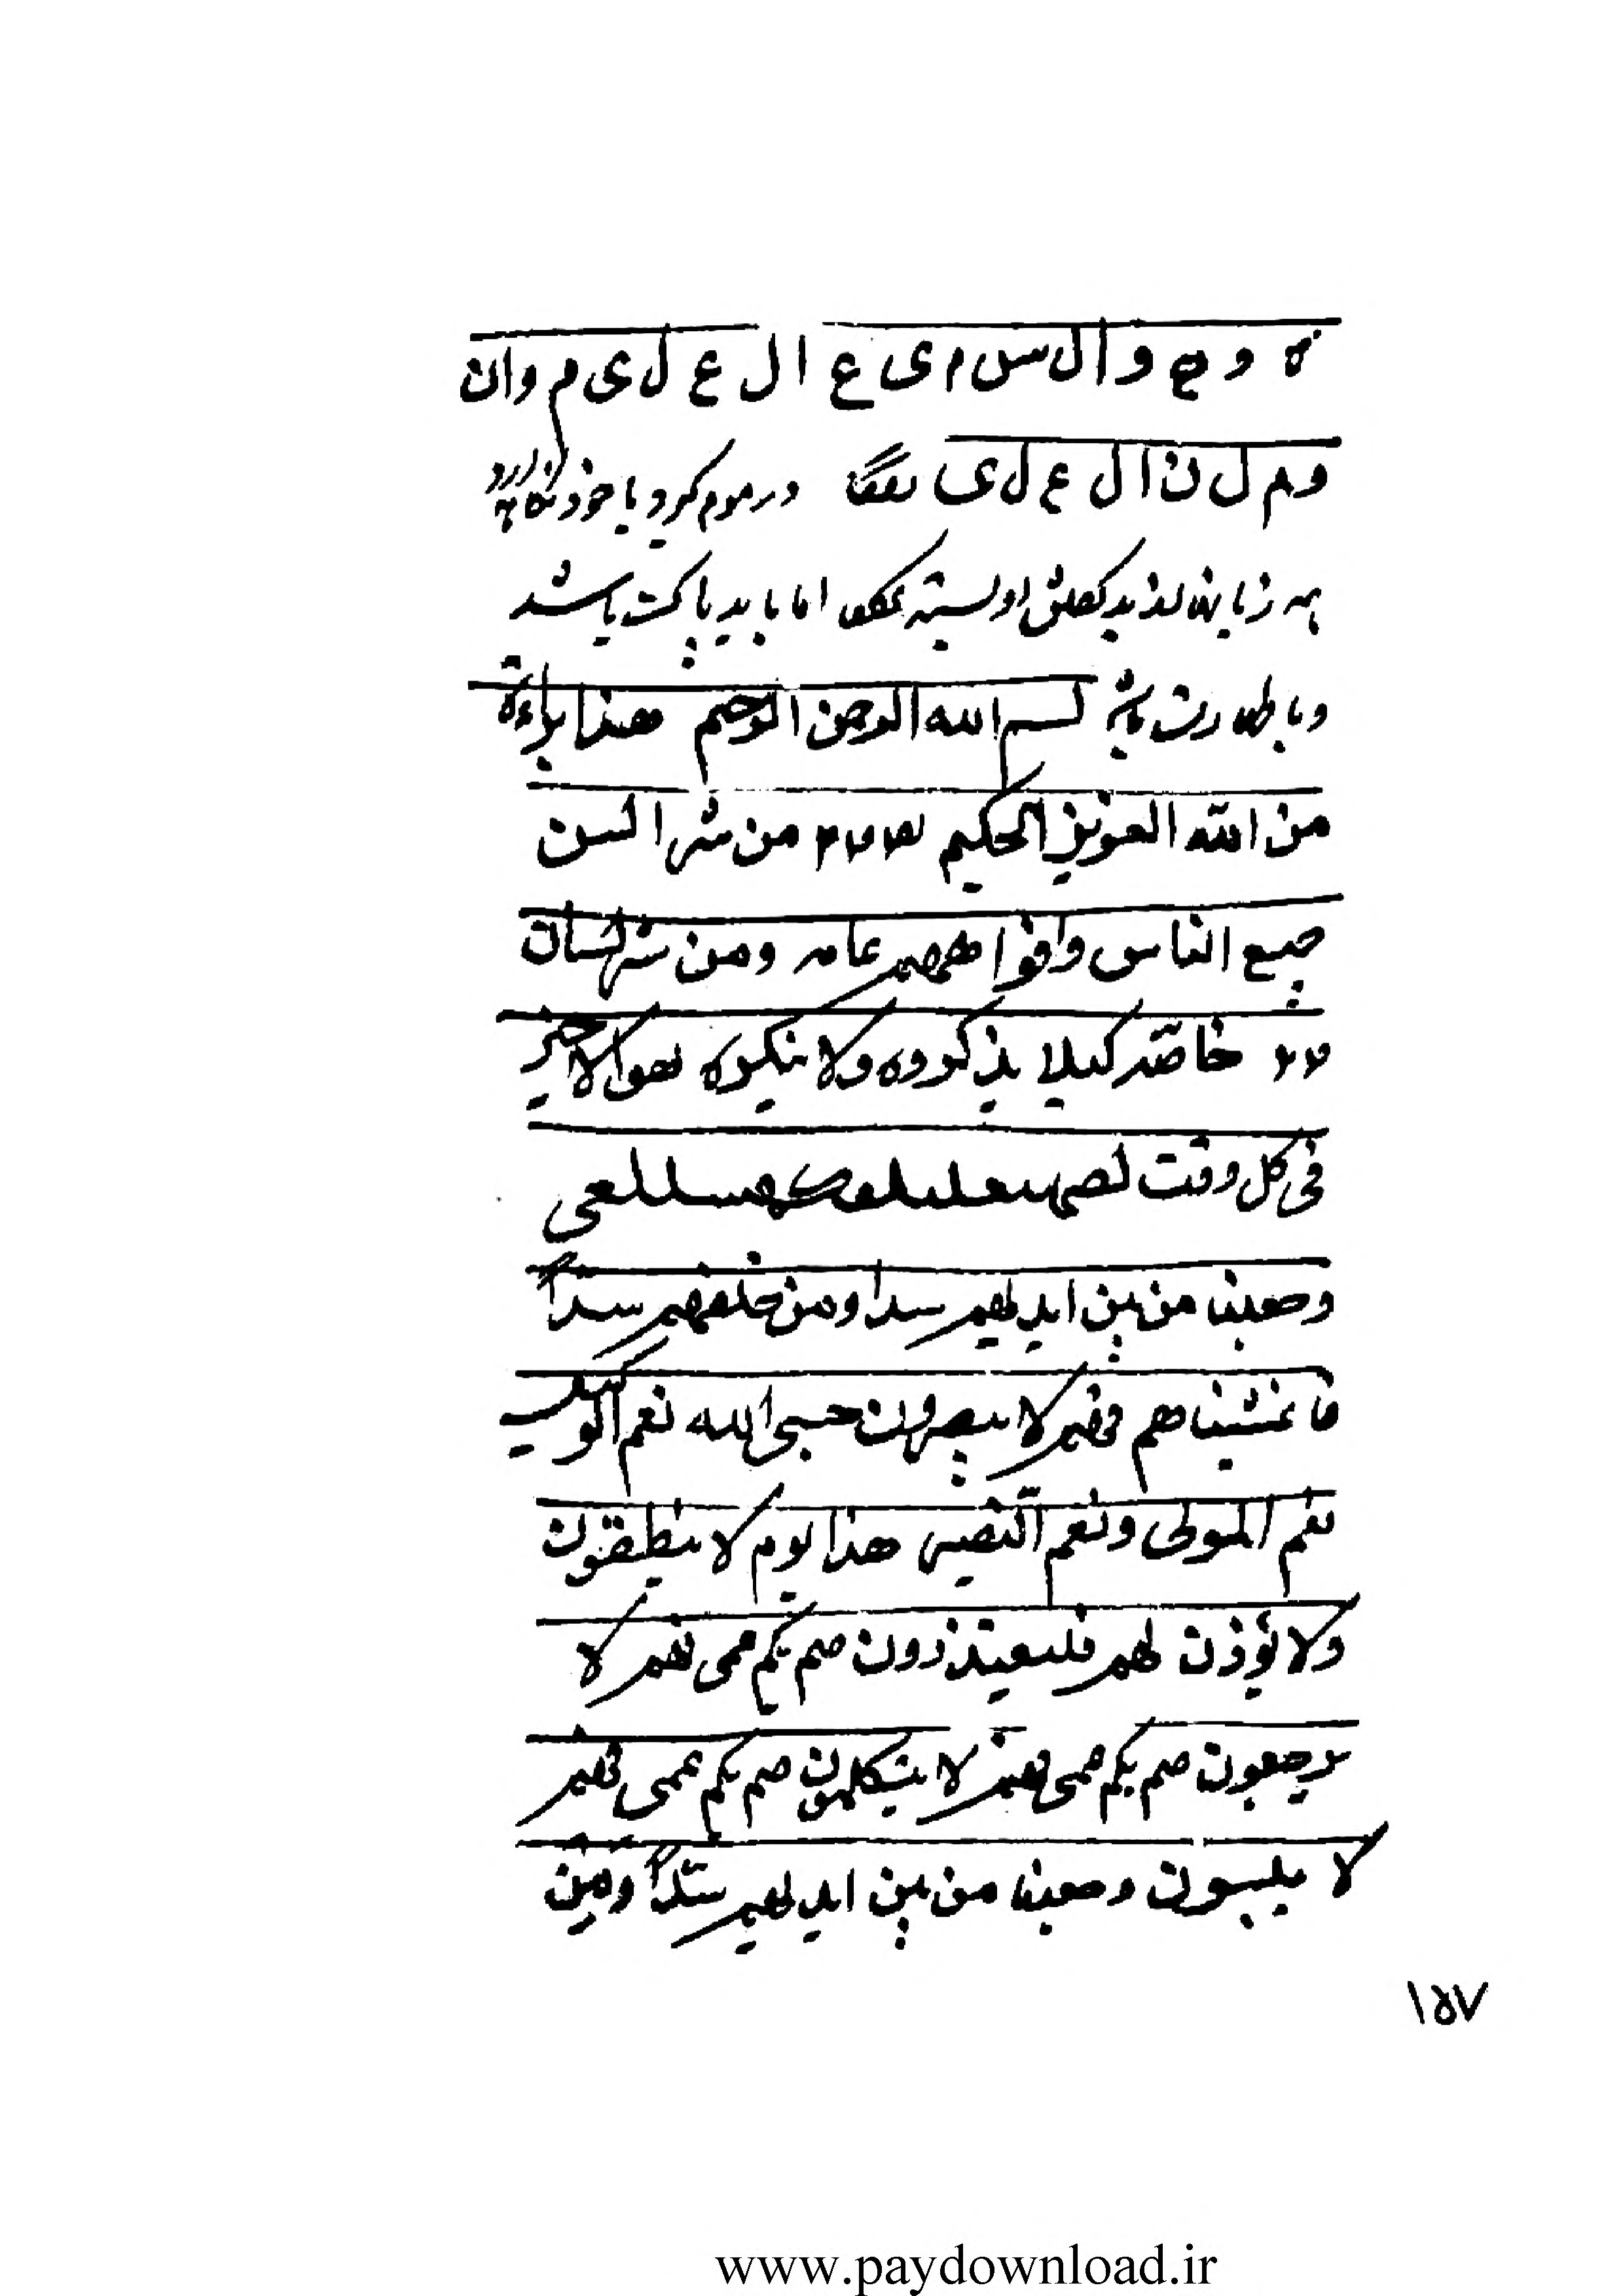 ه و ه و ا ل س م ی ع ا ل ع ل ی م و ا ن
و م ل ن ا ل ع ل ی در موم گیرد با خود نگاه دارد
همه زبانها اما باید پاک باشد
و با طهارت باشد بسم الله الرحمن الرحیم هذا براءة
من الله العزیز الحکیم من شر السن
جمیع الناس وافواههم عامه ومن شر لسان
۲۲ خاصه کیلا یذکروه ولا الا خیر
فی کل وقت
وجعلنا من بین ایدیهم سدا ومن خلفهم سداً
فاغشیناهم فهم لا یبصرون حسبی الله نعم الوکیل
نعم المولی ونعم النصیر هذا یوم لا ینطقون
ولا یؤذن لهم فیعتذرون صم بکم عمی فهم لا
یرجعون صم بکم عمی فهم لا یتکلمون صم بکم عمی فهم
لا وجعلنا من بین ایدیهم سدّاً ومن
۱۵۷
www.paydownload.ir